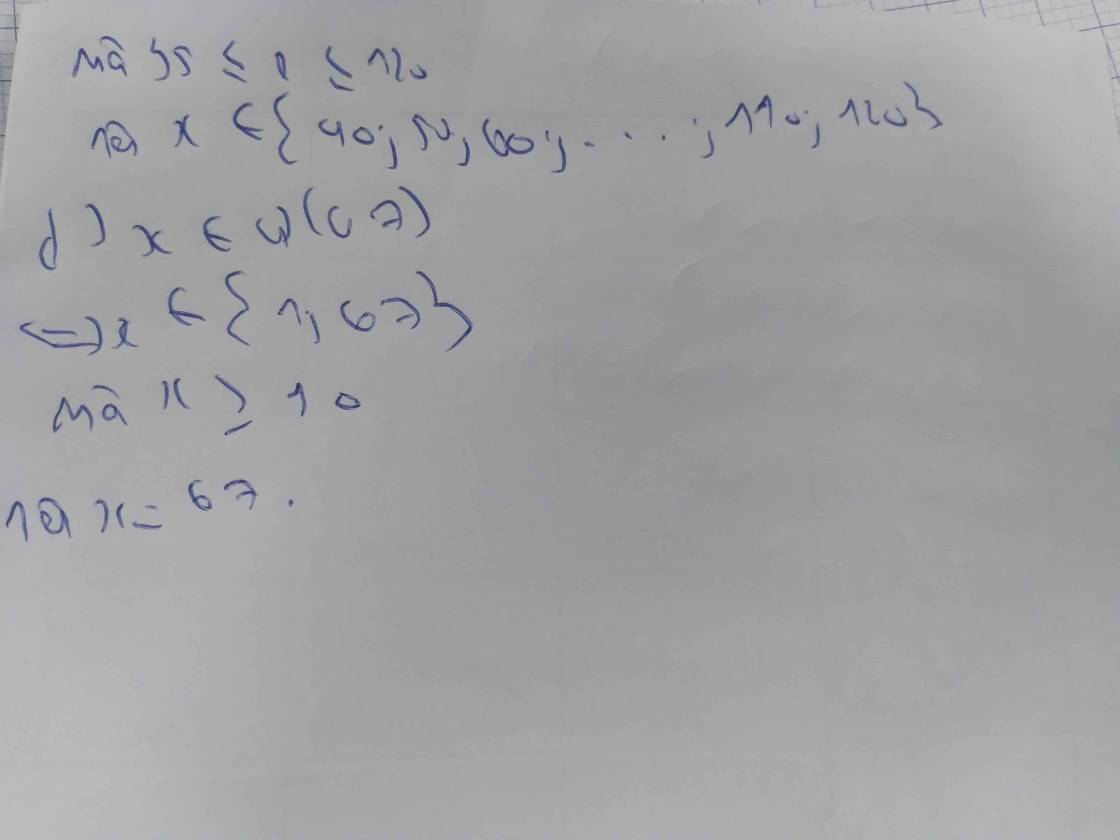 mà 35 ≤ x ≤ 120
nên x ∈ { 40; 50; 60; ....; 110; 120}
d) x ∈ Ư(67)
<=> x ∈ { 1; 67}
mà x ≥ 10
nên x = 67.